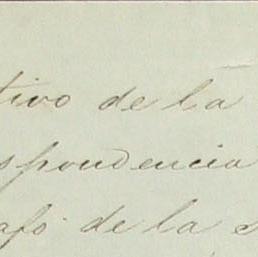 tivo de la
spondencia
afo de la s